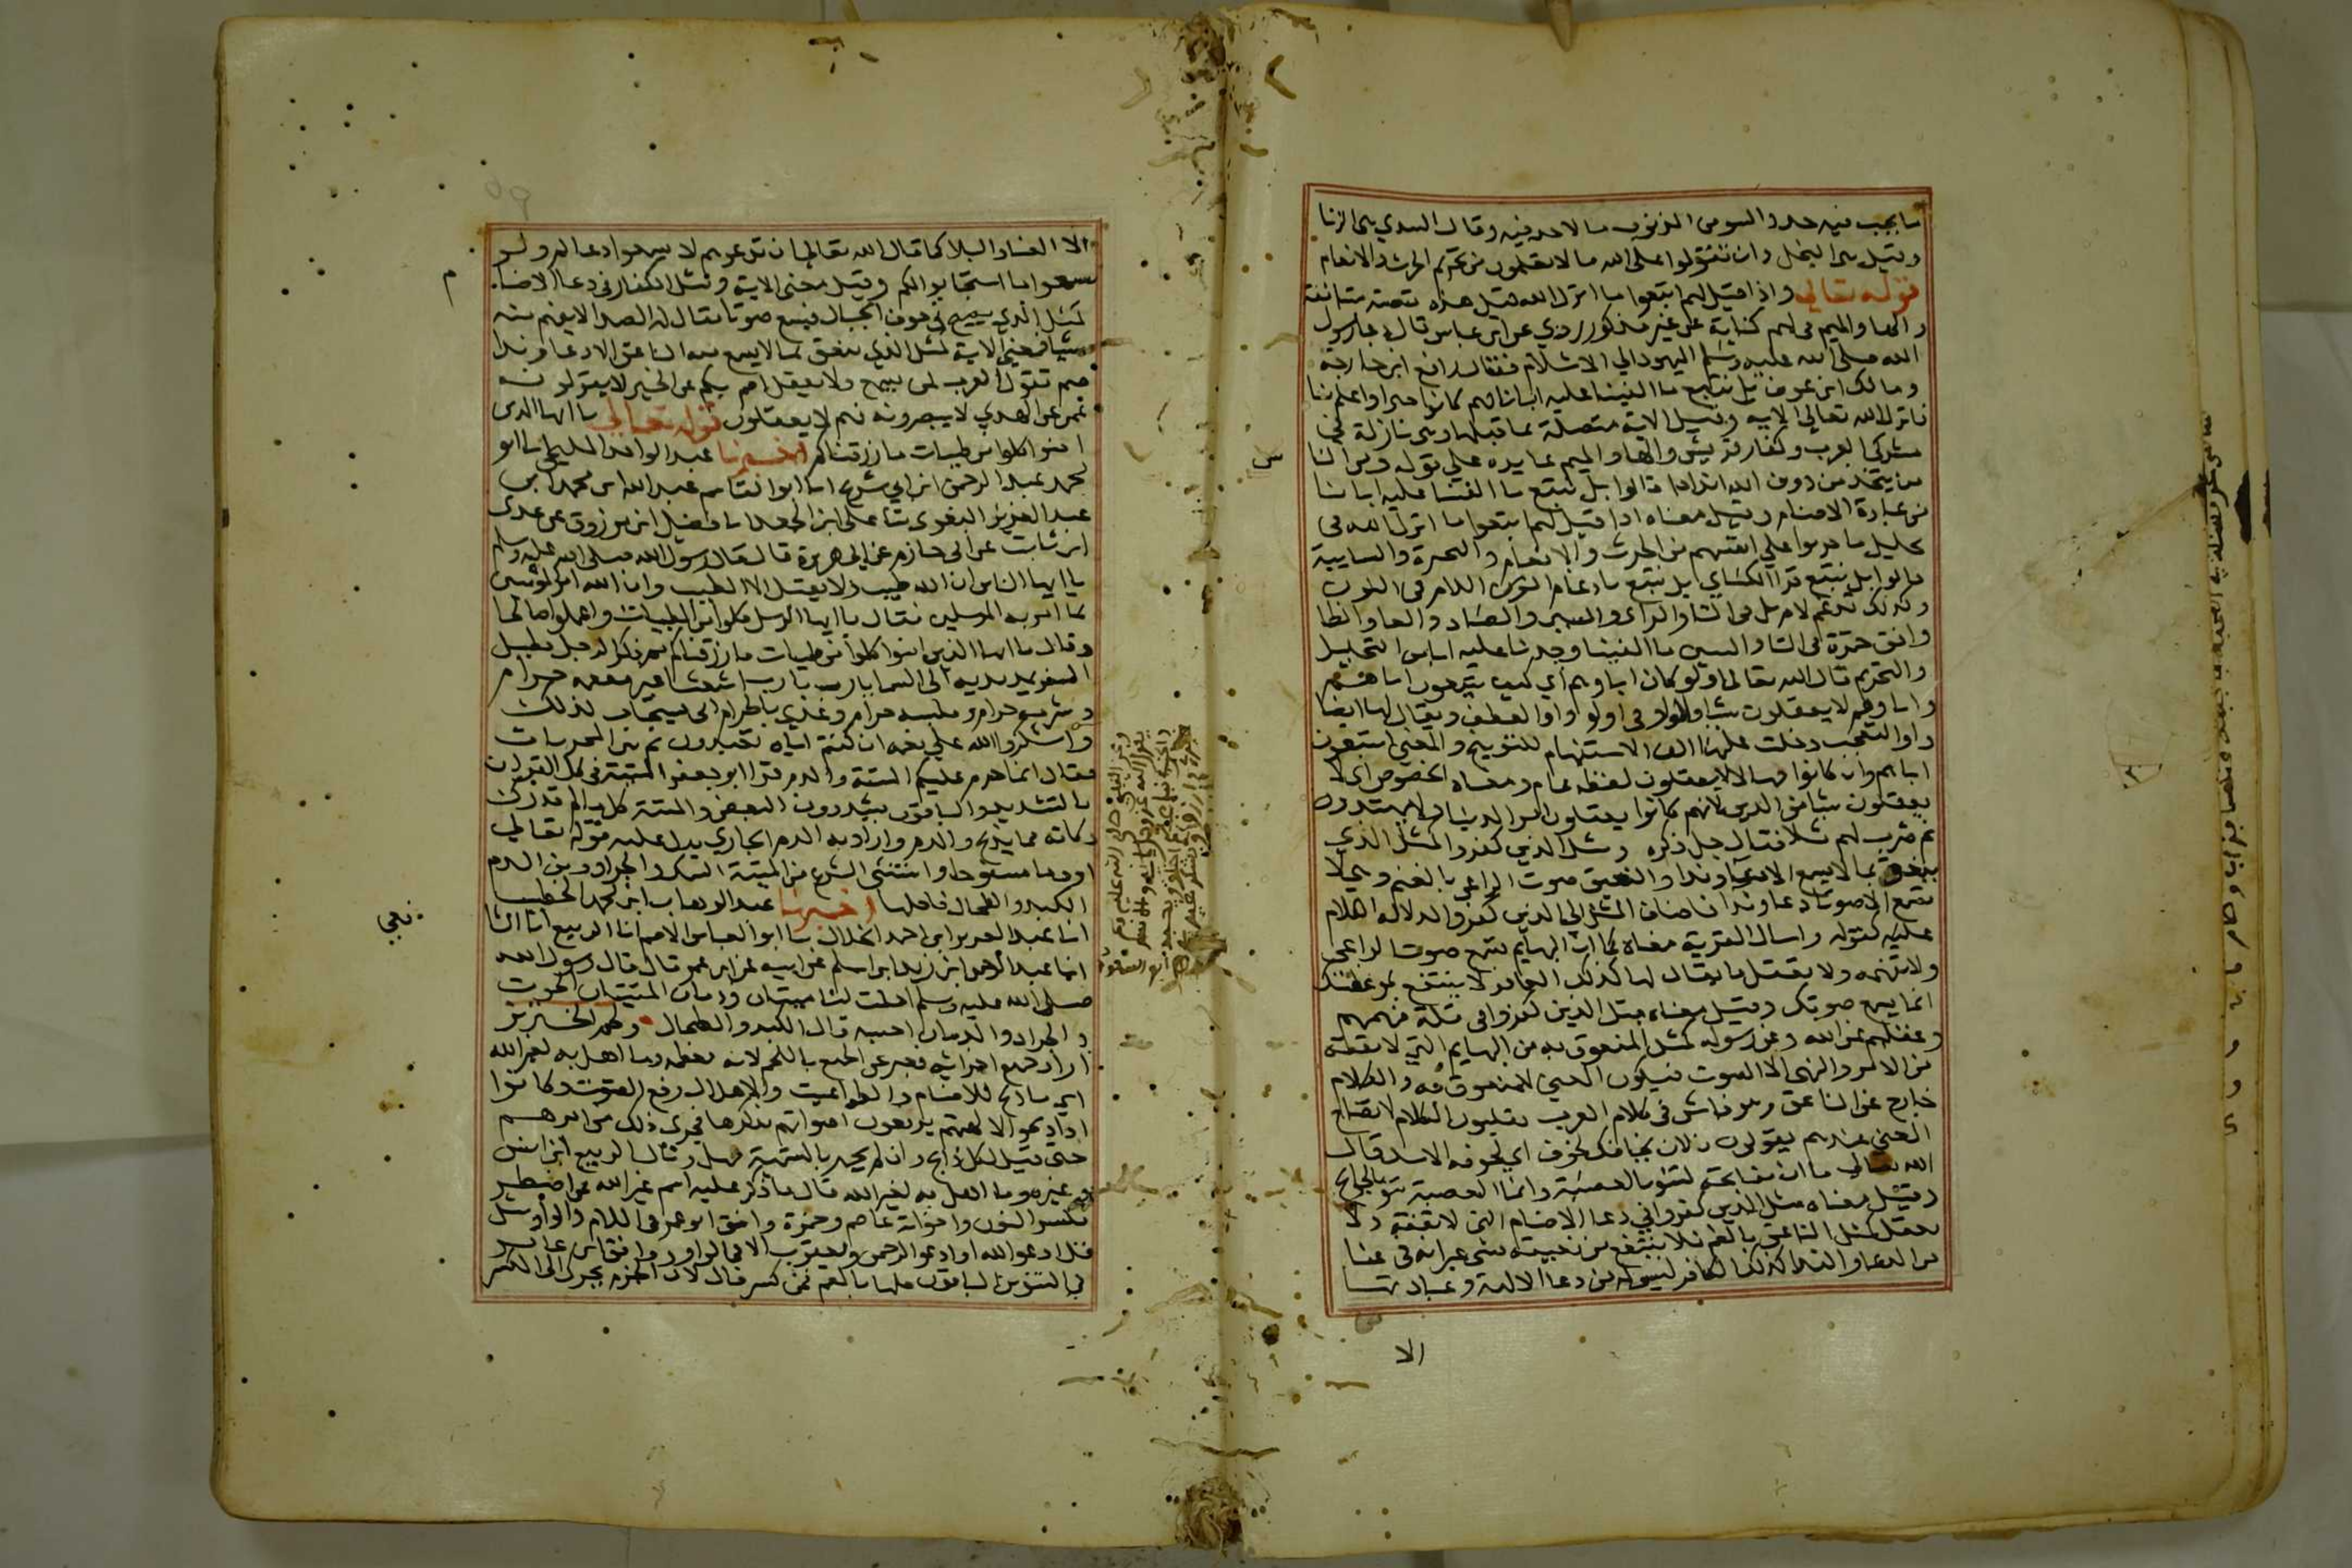 ما يجب فيه حد والسوء من الذنوب ما لا حد فيه وقال السدي هي الزنا
وقيل هي البخل وان تقولوا على الله ما لا تعلمون من تحريم الحرث والانعام
قوله تعالى واذا قيل لهم اتبعوا ما انزل الله قيل هذه قصة مستانفة
والها والميم في لهم كناية عن غير مذكور روي عن ابن عباس قال دعا رسول
الله صلى الله عليه وسلم اليهود الى الاسلام فقال رافع ابن خارجة
ومالك ابن عوف بل نتبع ما الفينا عليه اباناهم كانوا خيرا واعلم منا
فانزل الله تعالى الاية وقيل الاية متصلة بما قبلها وهي نازلة في
مشركي العرب وكفار قريش والها والميم عايده على قوله ومن الناس
من يتخذ من دون الله اندادا قالوا بل نتبع ما الفينا عليه اباننا
من عبادة الاصنام وقيل معناه اذا قيل لهم اتبعوا ما انزل الله في
تحليل ما حرموا على انفسهم من الحرث والانعام والبحيرة والسايبة
قالوا بل نتبع قرا الكساي بل نتبع بادغام اللام في النون
وكذلك تدغم لام هل في التا والثاء والسين والصاد والطا والظا
وافق حمزة في التا والسين ما الفينا وجدنا عليه ابانا من التحليل
والتحريم قال الله تعالى اولو كان اباوهم اي كيف يتبعون اباهم
واباوهم لا يعقلون شيا والواو في اولو واو العطف ويقال لها ايضا
واو التعجب دخلت عليها الف الاستفهام للتوبيخ والمعنى ايتبعون
اباهم وان كانوا جهالا لا يعقلون لفظه عام ومعناه الخصوص اي لا
يعقلون شيا من الدين لانهم كانوا يعقلون امر الدنيا ولا يهتدون
ثم ضرب لهم مثلا فقال جل ذكره ومثل الذين كفروا كمثل الذي
ينعق بما لا يسمع الا دعا وندا والنعيق صوت الراعي بالغنم وهي لا
تسمع الا صوتا دعا وندا فاضاف المثل الى الذين كفروا لدلالة الكلام
عليه كقوله واسال القرية معناه كما ان البهايم تسمع صوت الراعي
ولا تفهمه ولا تعقل ما يقال لها كذلك الكافر لا ينتفع بوعظك
انما يسمع صوتك وقيل معناه مثل الذين كفروا في قلة فهمهم
وعقلهم عن الله وعن رسوله كمثل المنعوق به من البهايم التي لا تفقه
من الامر والنهي الا الصوت فيكون المعنى للمنعوق به والكلام
خارج عن الناعق وهو فاش في كلام العرب يقلبون الكلام لايضاح
المعنى عندهم يقولون فلان يخافك كخوف الاسد اي كخوفه الاسد وقال
الله تعالى ما ان مفاتحه لتنوء بالعصبة وانما العصبة تنوء بالمفاتح
وقيل معناه مثل الذين كفروا في دعا الاصنام التي لا تفقه ولا
تعقل كمثل الناعق بالغنم فلا ينتفع من نعيقه بشي غير انه في عنا
من الدعا والندا كذلك الكافر ليس له من دعا الالهة وعبادتها
الا
الا العنا والبلا كما قال الله تعالى ان تدعوهم لا يسمعوا دعاكم ولو
سمعوا ما استجابوا لكم وقيل معنى الاية ومثل الكفار في دعا الاصنام
كمثل الذي يصيح في جوف الجبال فيسمع صوتا يقال له الصدا لا يفهم منه
شيا فمعنى الاية كمثل الذي ينعق بما لا يسمع منه الناعق الا دعا وندا
صم تقول العرب لمن يسمع ولا يعقل اصم بكم عن الخير لا يقولونه
عمي عن الهدي لا يبصرونه فهم لا يعقلون قوله تعالى يا ايها الذين
امنوا كلوا من طيبات ما رزقناكم اخبرنا عبد الواحد المليحي انا ابو
محمد عبد الرحمن ابن ابي شريح انا ابو القاسم عبد الله ابن محمد ابن
عبد العزيز البغوي ثنا علي ابن الجعد انا فضيل ابن مرزوق عن عدي
ابن ثابت عن ابي حازم عن ابي هريرة قال قال رسول الله صلى الله عليه وسلم
يا ايها الناس ان الله طيب ولا يقبل الا الطيب وان الله امر المومنين
بما امر به المرسلين فقال يا ايها الرسل كلوا من الطيبات واعملوا صالحا
وقال يا ايها الذين امنوا كلوا من طيبات ما رزقناكم ثم ذكر الرجل يطيل
السفر يمد يديه الى السما يارب يارب اشعث اغبر مطعمه حرام
ومشربه حرام وملبسه حرام وغذي بالحرام انى يستجاب لذلك
واشكروا الله على نعمه ان كنتم اياه تعبدون ثم بين المحرمات
فقال انما حرم عليكم الميتة والدم قرا ابو جعفر الميتة في كل القران
بالتشديد والباقون يشددون البعض والميتة كل ما لم تدرك
ذكاته مما يذبح والدم واراد به الدم الجاري يدل عليه قوله تعالى
او دما مسفوحا واستثنى الشرع من الميتة السمك والجراد ومن الدم
الكبد والطحال فاحلها اخبرنا عبد الوهاب ابن محمد الخطيب
انا عبد العزيز ابن احمد الخلال انا ابو العباس الاصم انا الربيع انا الشا
فعي
انا عبد الرحمن ابن زيد ابن اسلم عن ابيه عن ابن عمر قال قال رسول الله
صلى الله عليه وسلم احلت لنا ميتتان ودمان الميتتان الحوت
والجراد والدمان احسبه قال الكبد والطحال ولحم الخنزير
اراد جميع اجزائه فعبر عن الجميع باللحم لانه معظمه وما اهل به لغير الله
اي ما ذبح للاصنام والطواغيت والاهلال رفع الصوت وكانوا
اذا ذبحوا لالهتهم يرفعون اصواتهم بذكرها فجرى ذلك من امرهم
حتى قيل لكل ذابح وان لم يجهر بالتسمية مهل وقال الربيع ابن انس
وغيره وما اهل به لغير الله قال ما ذكر عليه اسم غير الله فمن اضطر
بكسر النون واخواته عاصم وحمزة وافق ابو عمرو في اللام والواو مثل
قل ادعوا الله او ادعوا الرحمن ويعقوب الا في الواو ووافق ابن عامر
في التنوين الباقون كلها بالضم فمن كسر قال لان الجزم يحرك الى الكسر